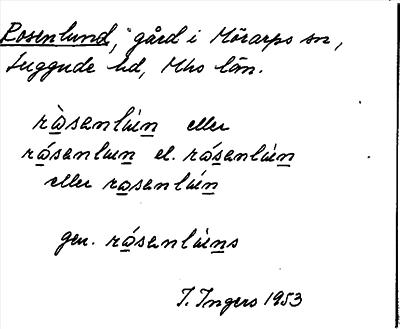 Rosenlund, gård i Mörarps sn,
Luggude hd, Mhs län.
ràsenlúen eller
rásenluen el. rásenlúen
eller rasenlúen
gen. rásenlúens
I. Ingers 1953